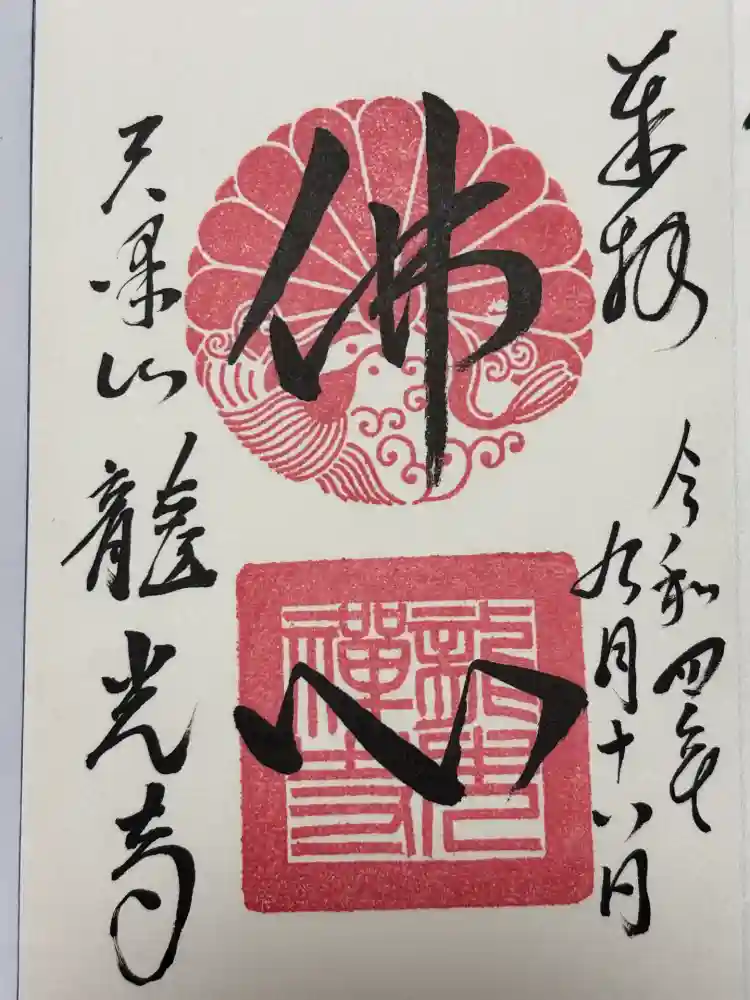 奉拝
令和四年
九月十八日
佛心
龍光
禪寺
天澤山 龍光寺